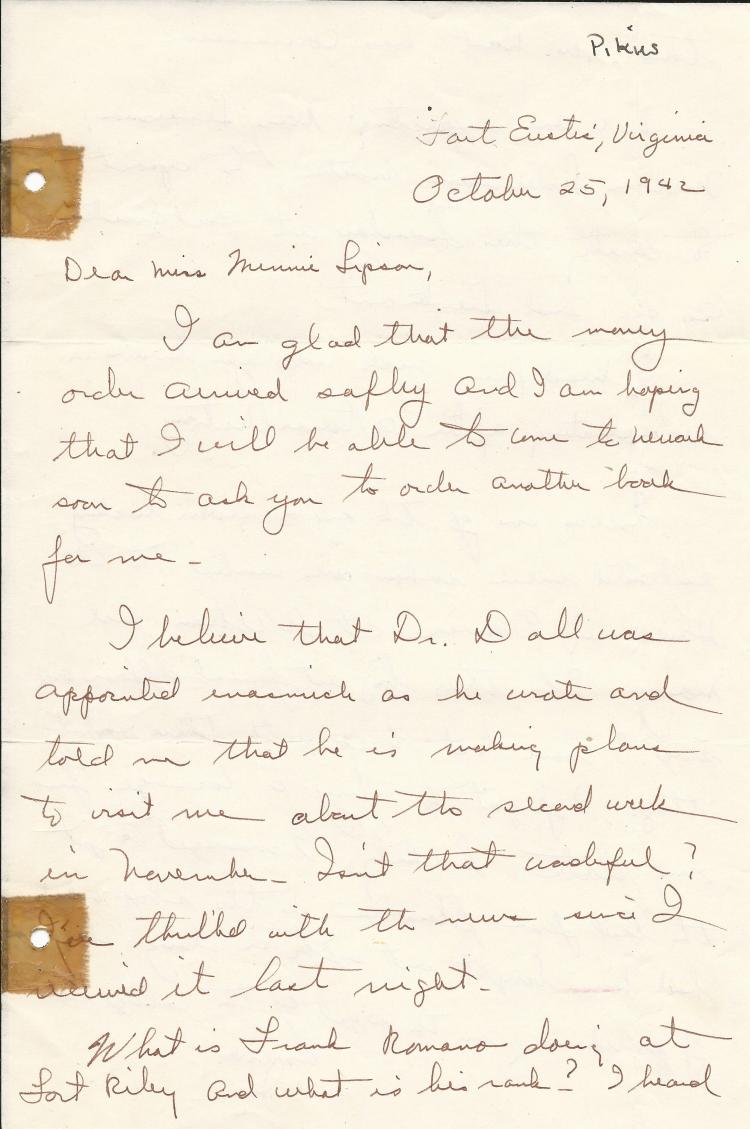 Pikus
Fort Eustis, Virginia
October 25, 1942
Dear Miss Minnie Lipson,
I am glad that the money
order arrived safly and I am hoping
that I will be able to come to Newark
soon to ask you to order another book
for me -
I believe that Dr. Dall was
appointed inasmuch as he wrote and
told me that he is making plans
to visit me about the second week
in November - Isn't that wonderful?
I'm thrilled with the news since I
received it last night.
What is Frank Romano doing at
Fort Riley and what is his rank? I heard